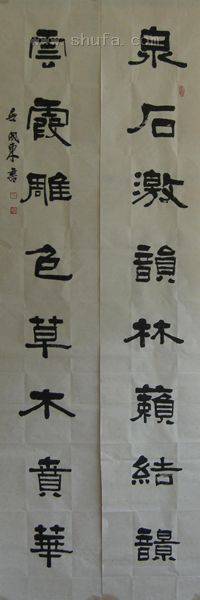 www.shufa.com
泉石激韻林籟結
雲霞雕色草木賁華
東書